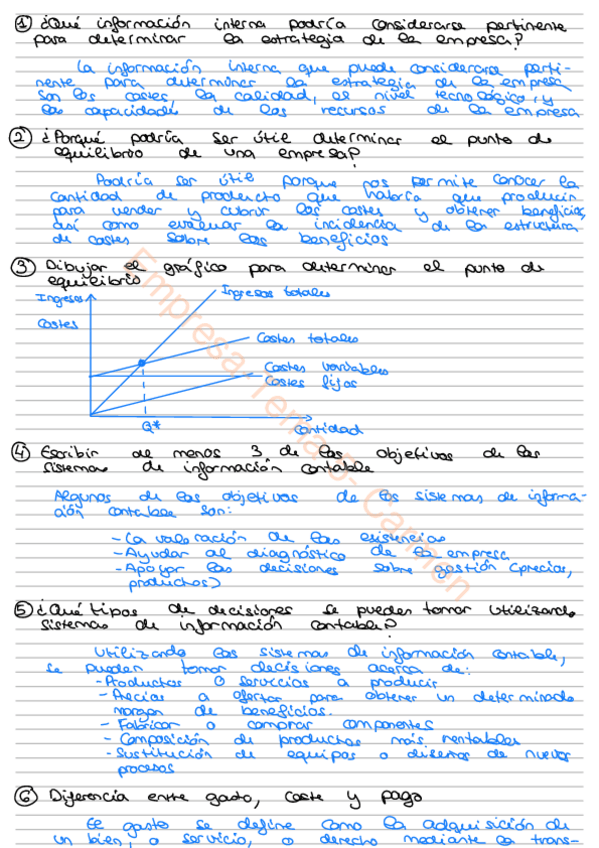 ① ¿Qué información interna podría considerarse pertinente
para determinar la estrategia de la empresa?
La información interna que puede considerarse perti-
nente para determinar la estrategia de la empresa
son los costes, la calidad, el nivel tecnológico, y
las capacidades de los recursos de la empresa
② ¿Porqué podría ser útil determinar el punto de
equilibrio de una empresa?
Podría ser útil porque nos permite conocer la
cantidad de producto que habría que producir
para vender y cubrir los costes y obtener beneficios,
así como evaluar la incidencia de la estructura
de costes sobre los beneficios
③ Dibujar el gráfico para determinar el punto de
equilibrio
Ingresos
Costes
Ingresos totales
Costes totales
Costes variables
Costes fijos
Q*
Cantidad
④ Escribir de menos 3 de los objetivos de los
sistemas de información contable
Algunos de los objetivos de los sistemas de informa-
ción contable son:
- La valoración de las existencias
- Ayudar al diagnóstico de la empresa
- Apoyar las decisiones sobre gestión (precios,
productos)
⑤ ¿Qué tipos de decisiones se pueden tomar utilizando
sistemas de información contable?
Utilizando los sistemas de información contable,
se pueden tomar decisiones acerca de:
- Productos o servicios a producir
- Precios a ofertar para obtener un determinado
margen de beneficios.
- Fabricar o comprar componentes
- Composición de productos más rentables
- Sustitución de equipos o diseños de nuevos
procesos
⑥ Diferencia entre gasto, coste y pago
El gasto se define como la adquisición de
un bien, o servicio, o derecho mediante la trans-
Empresa-Tema-5-Carmen